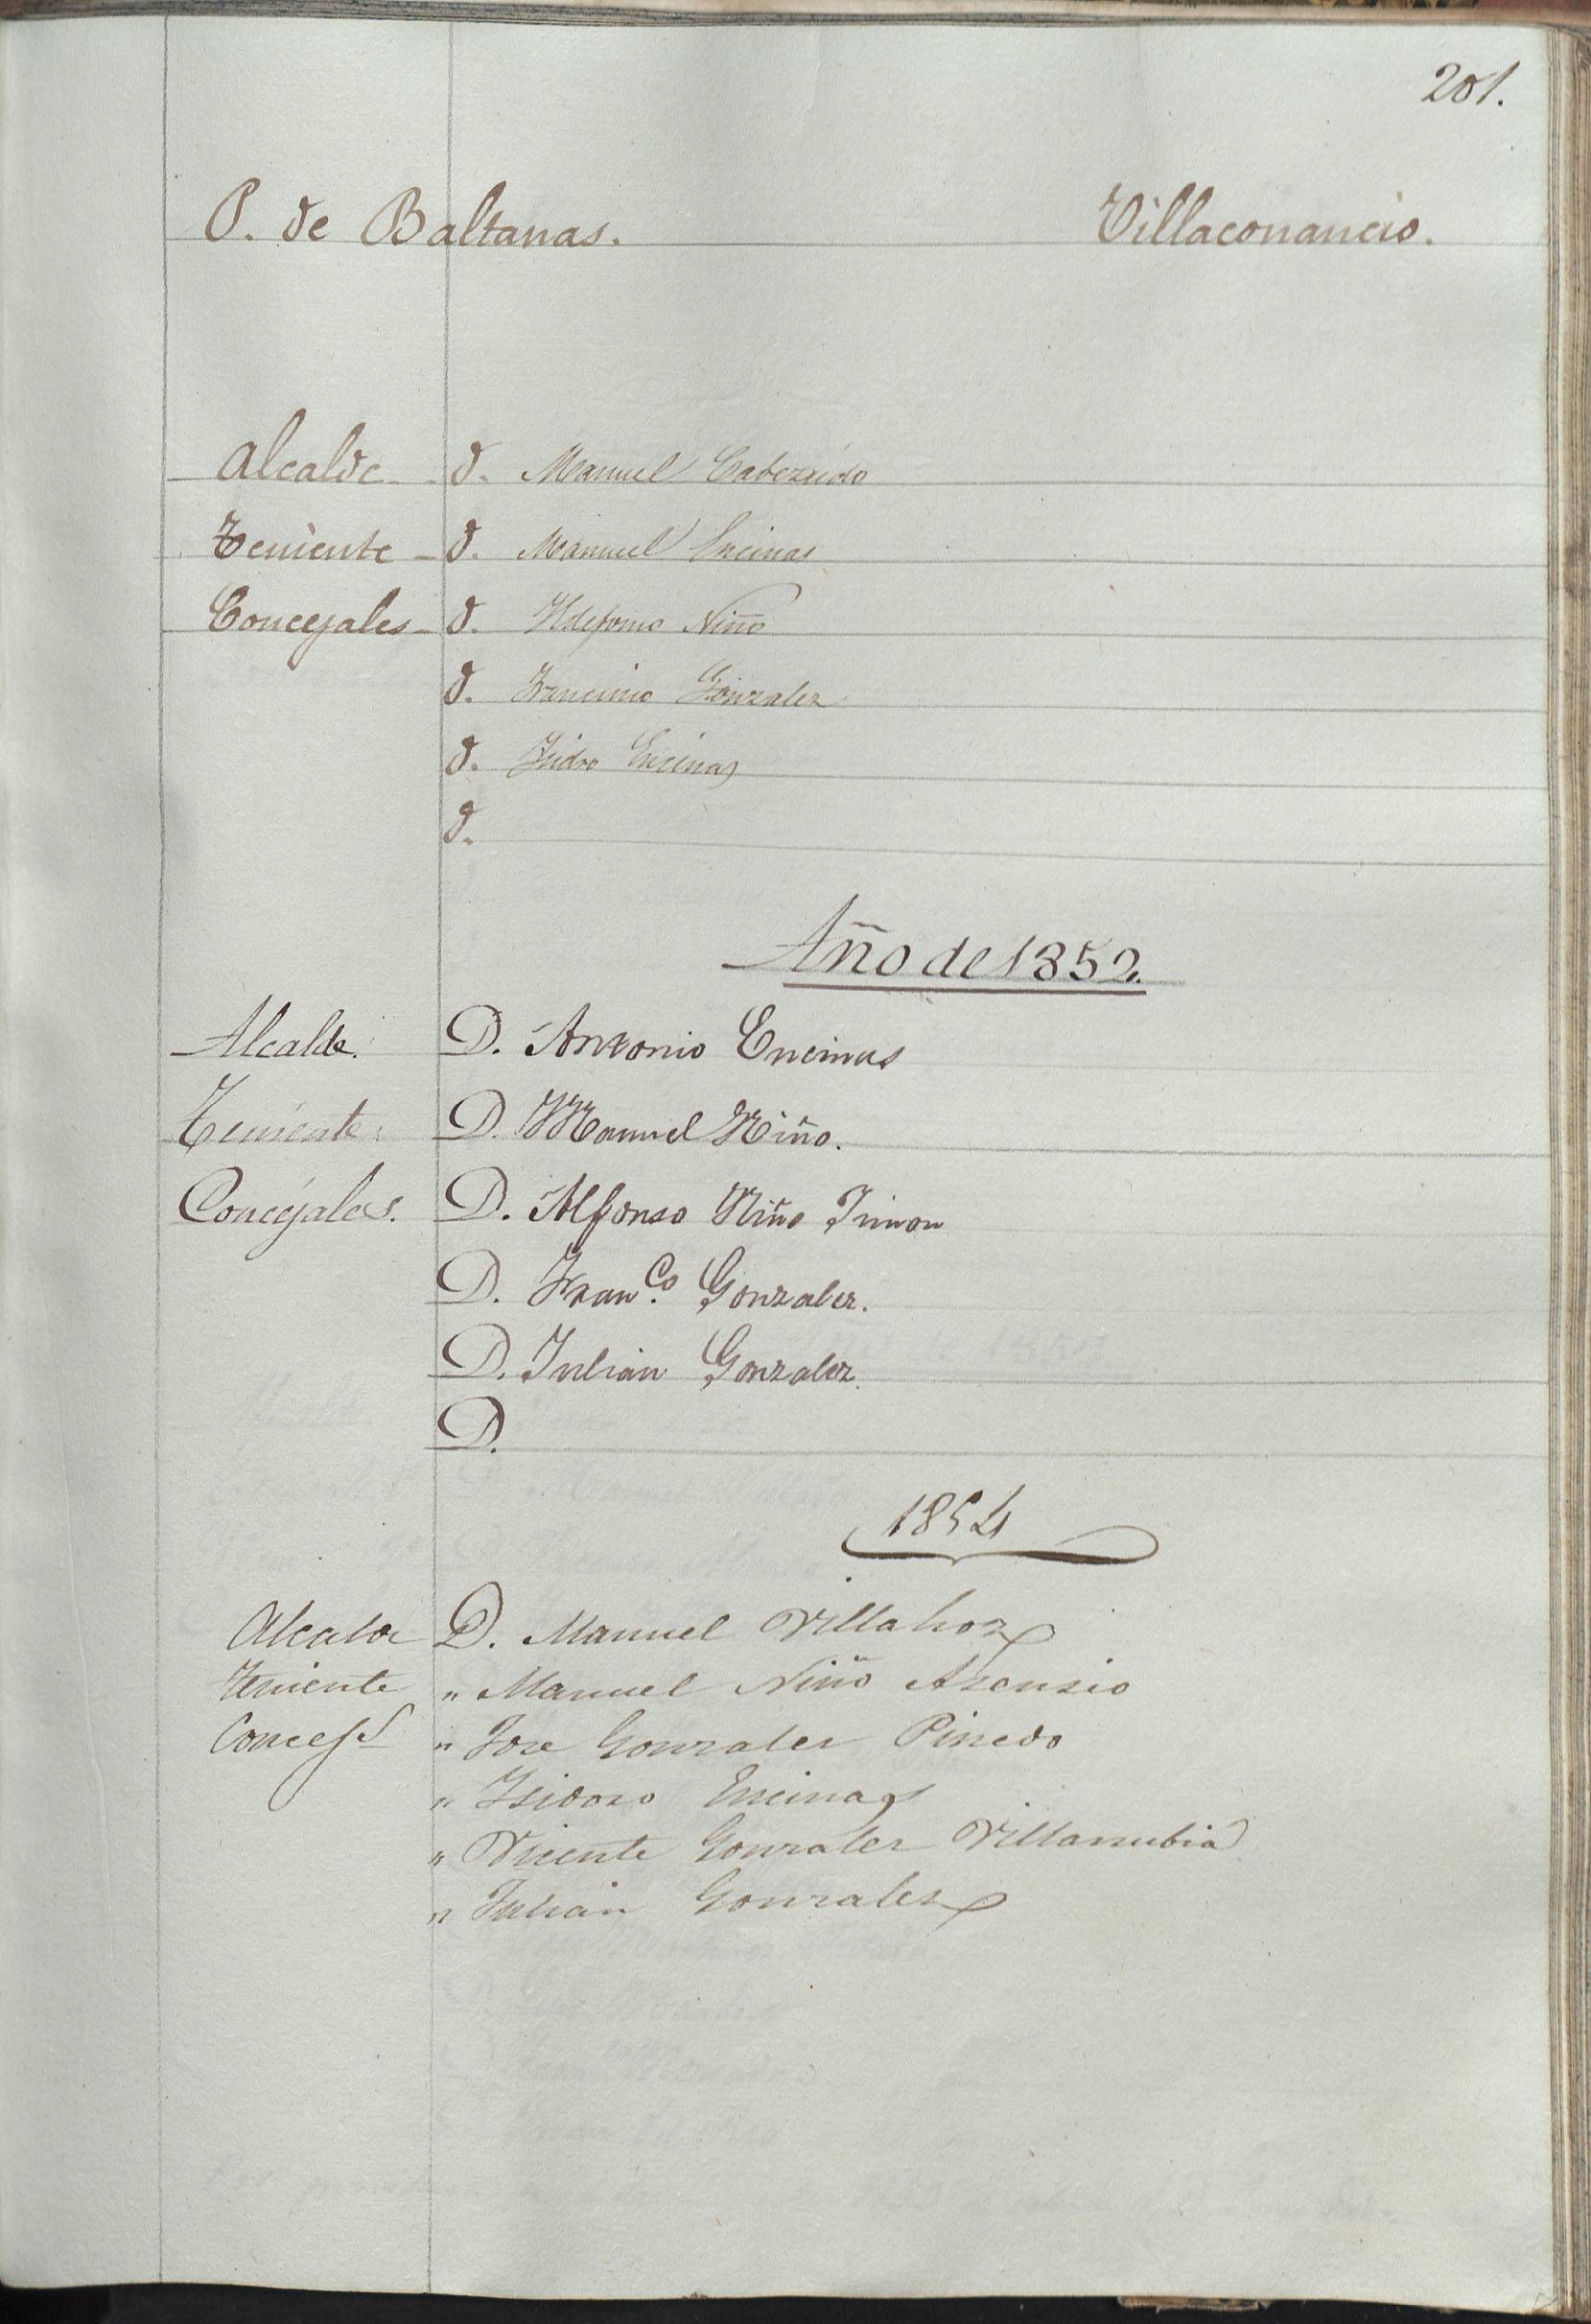 201.
P. de Baltanas. Villaconancio.
Alcalde - D. Manuel Cabezudo
Teniente - D. Manuel Encinas
Concejales - D. Ildefonso Niño
D. Francisco Gonzalez
D. Isidro Encinas
D.
Año de 1852.
Alcalde. D. Antonio Encinas
Teniente. D. Manuel Niño.
Concejales. D. Alfonso Niño Simon
D. Fran.co Gonzalez.
D. Julian Gonzalez.
D.
1854
Alcalde D. Manuel Villahoz
Teniente " Manuel Niño Asensio
Concejs " Jose Gonzalez Pinedo
" Isidoro Encinas
" Vicente Gonzalez Villanubia
" Julian Gonzalez